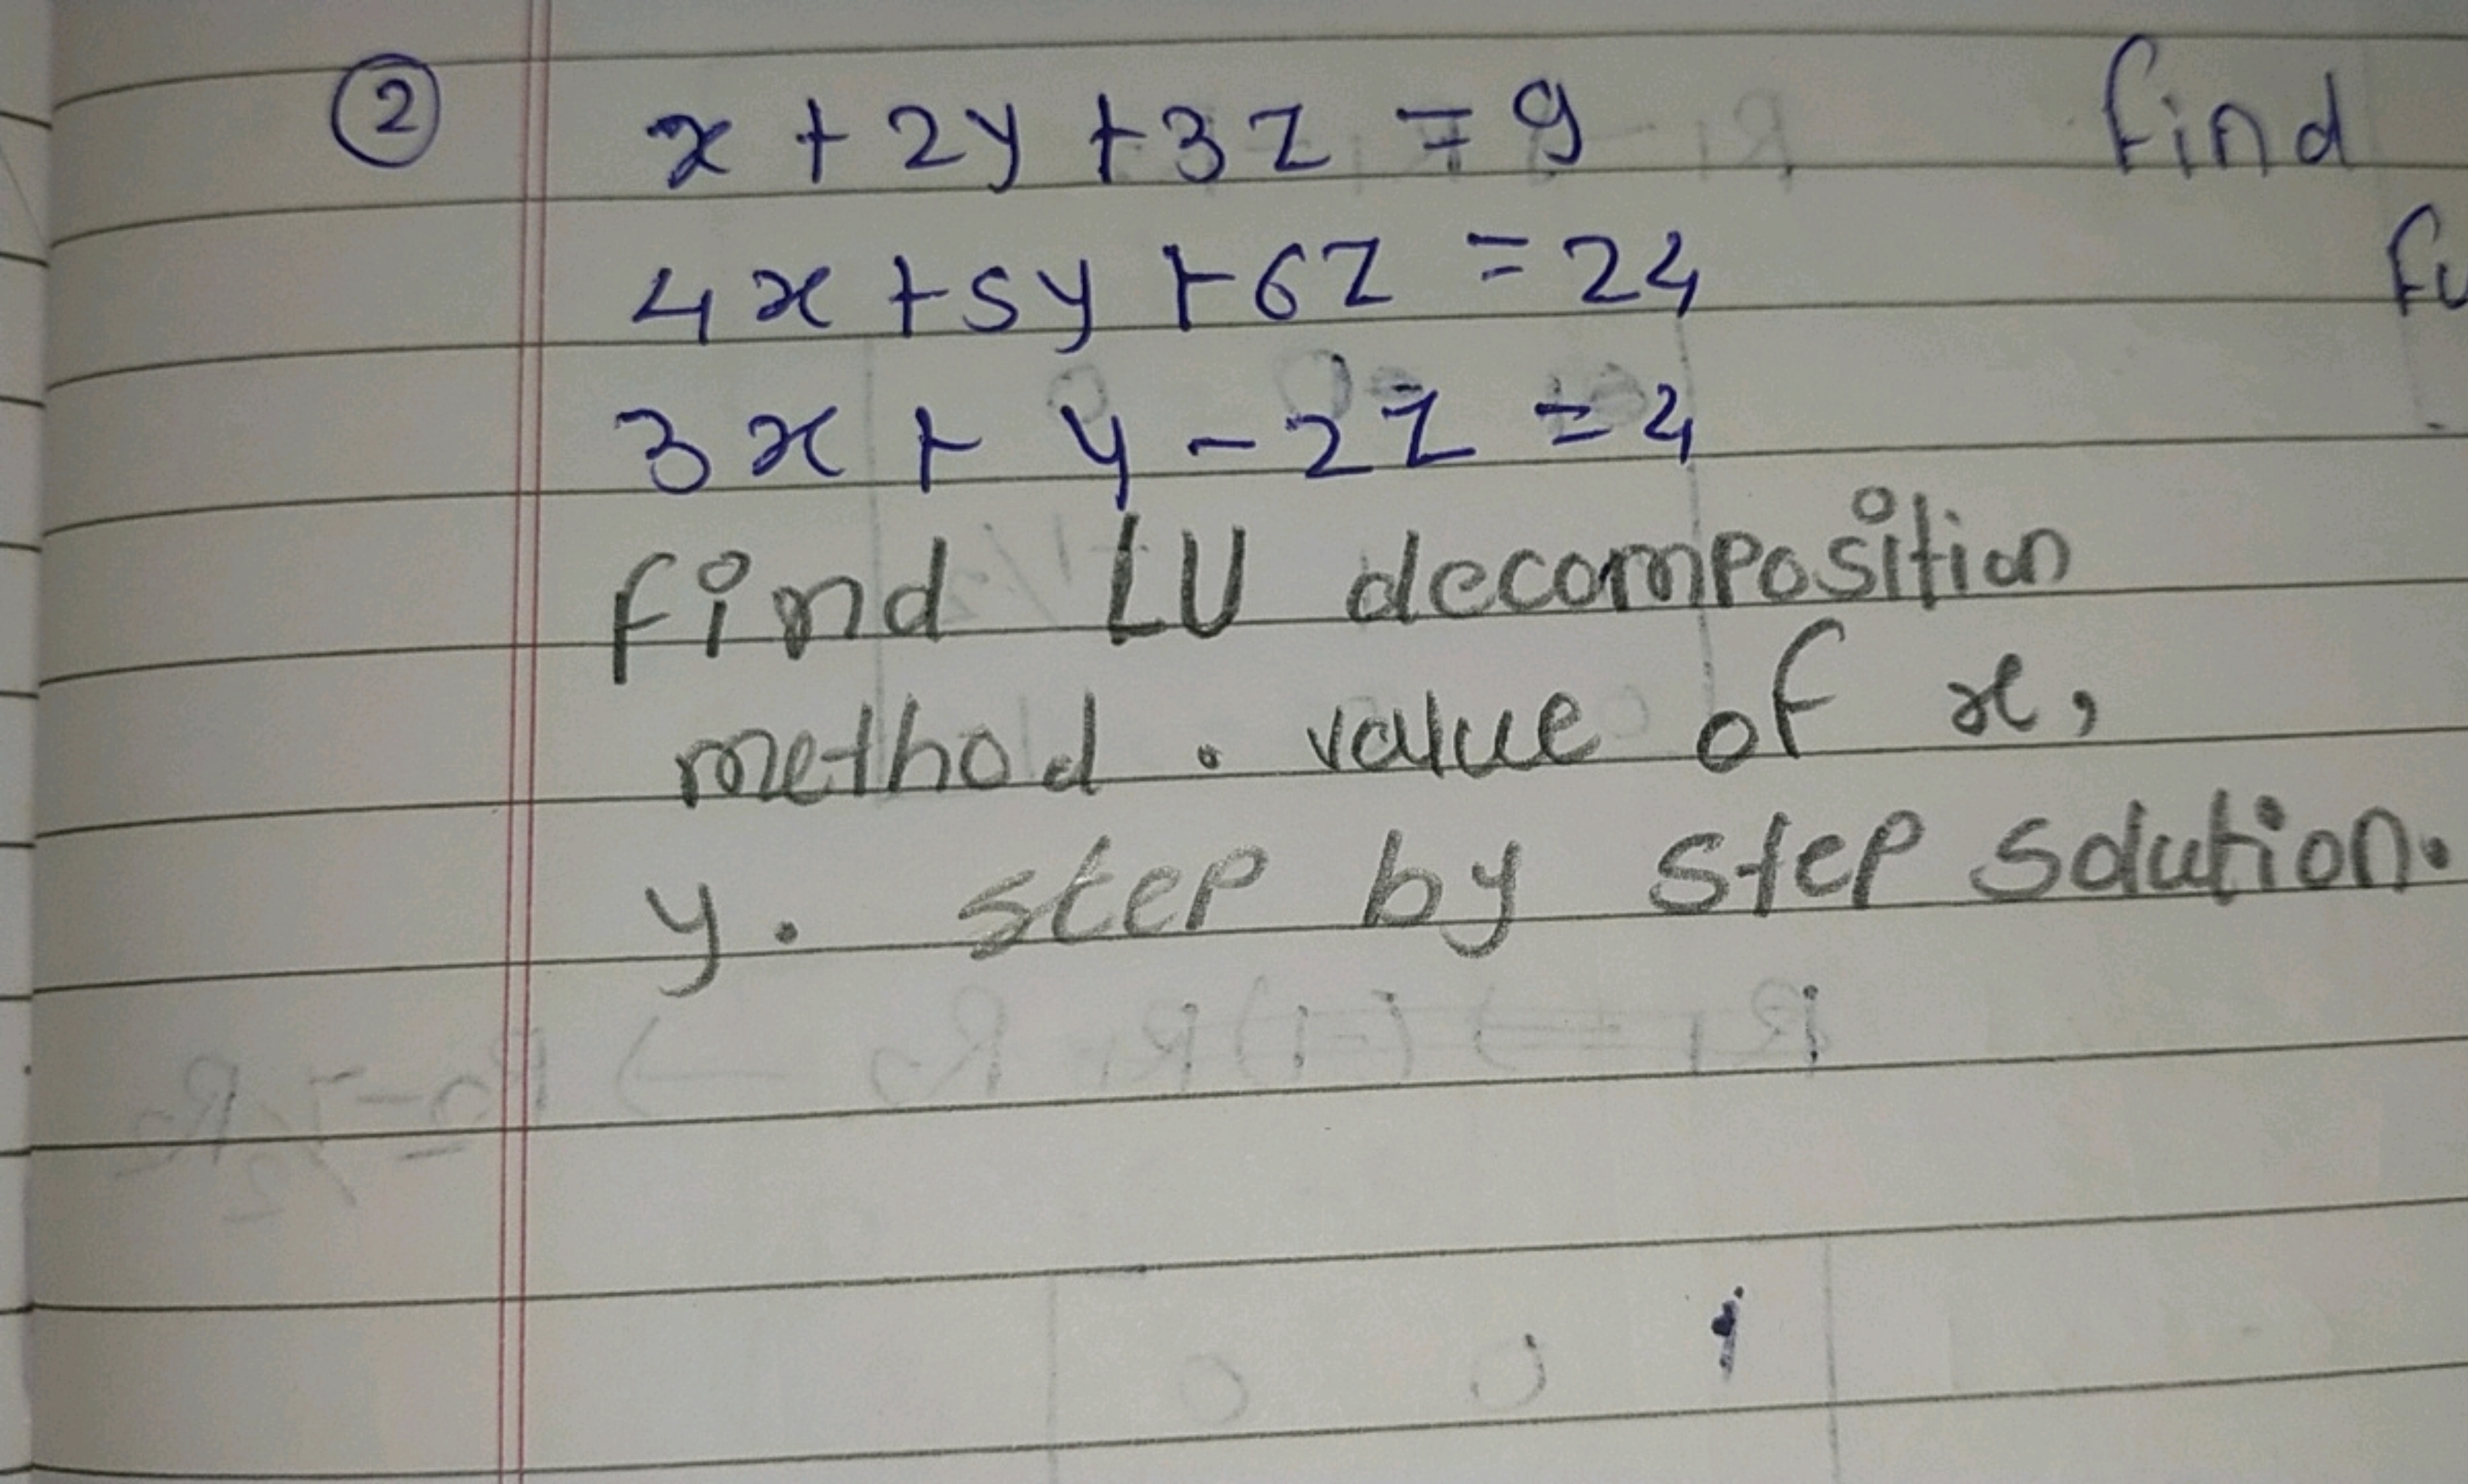 ② x + 2y + 3z = 9 find
4x + 5y + 6z = 24
3x + y - 2z = 4
find LU decomposition
method. value of x,
y. step by step solution.